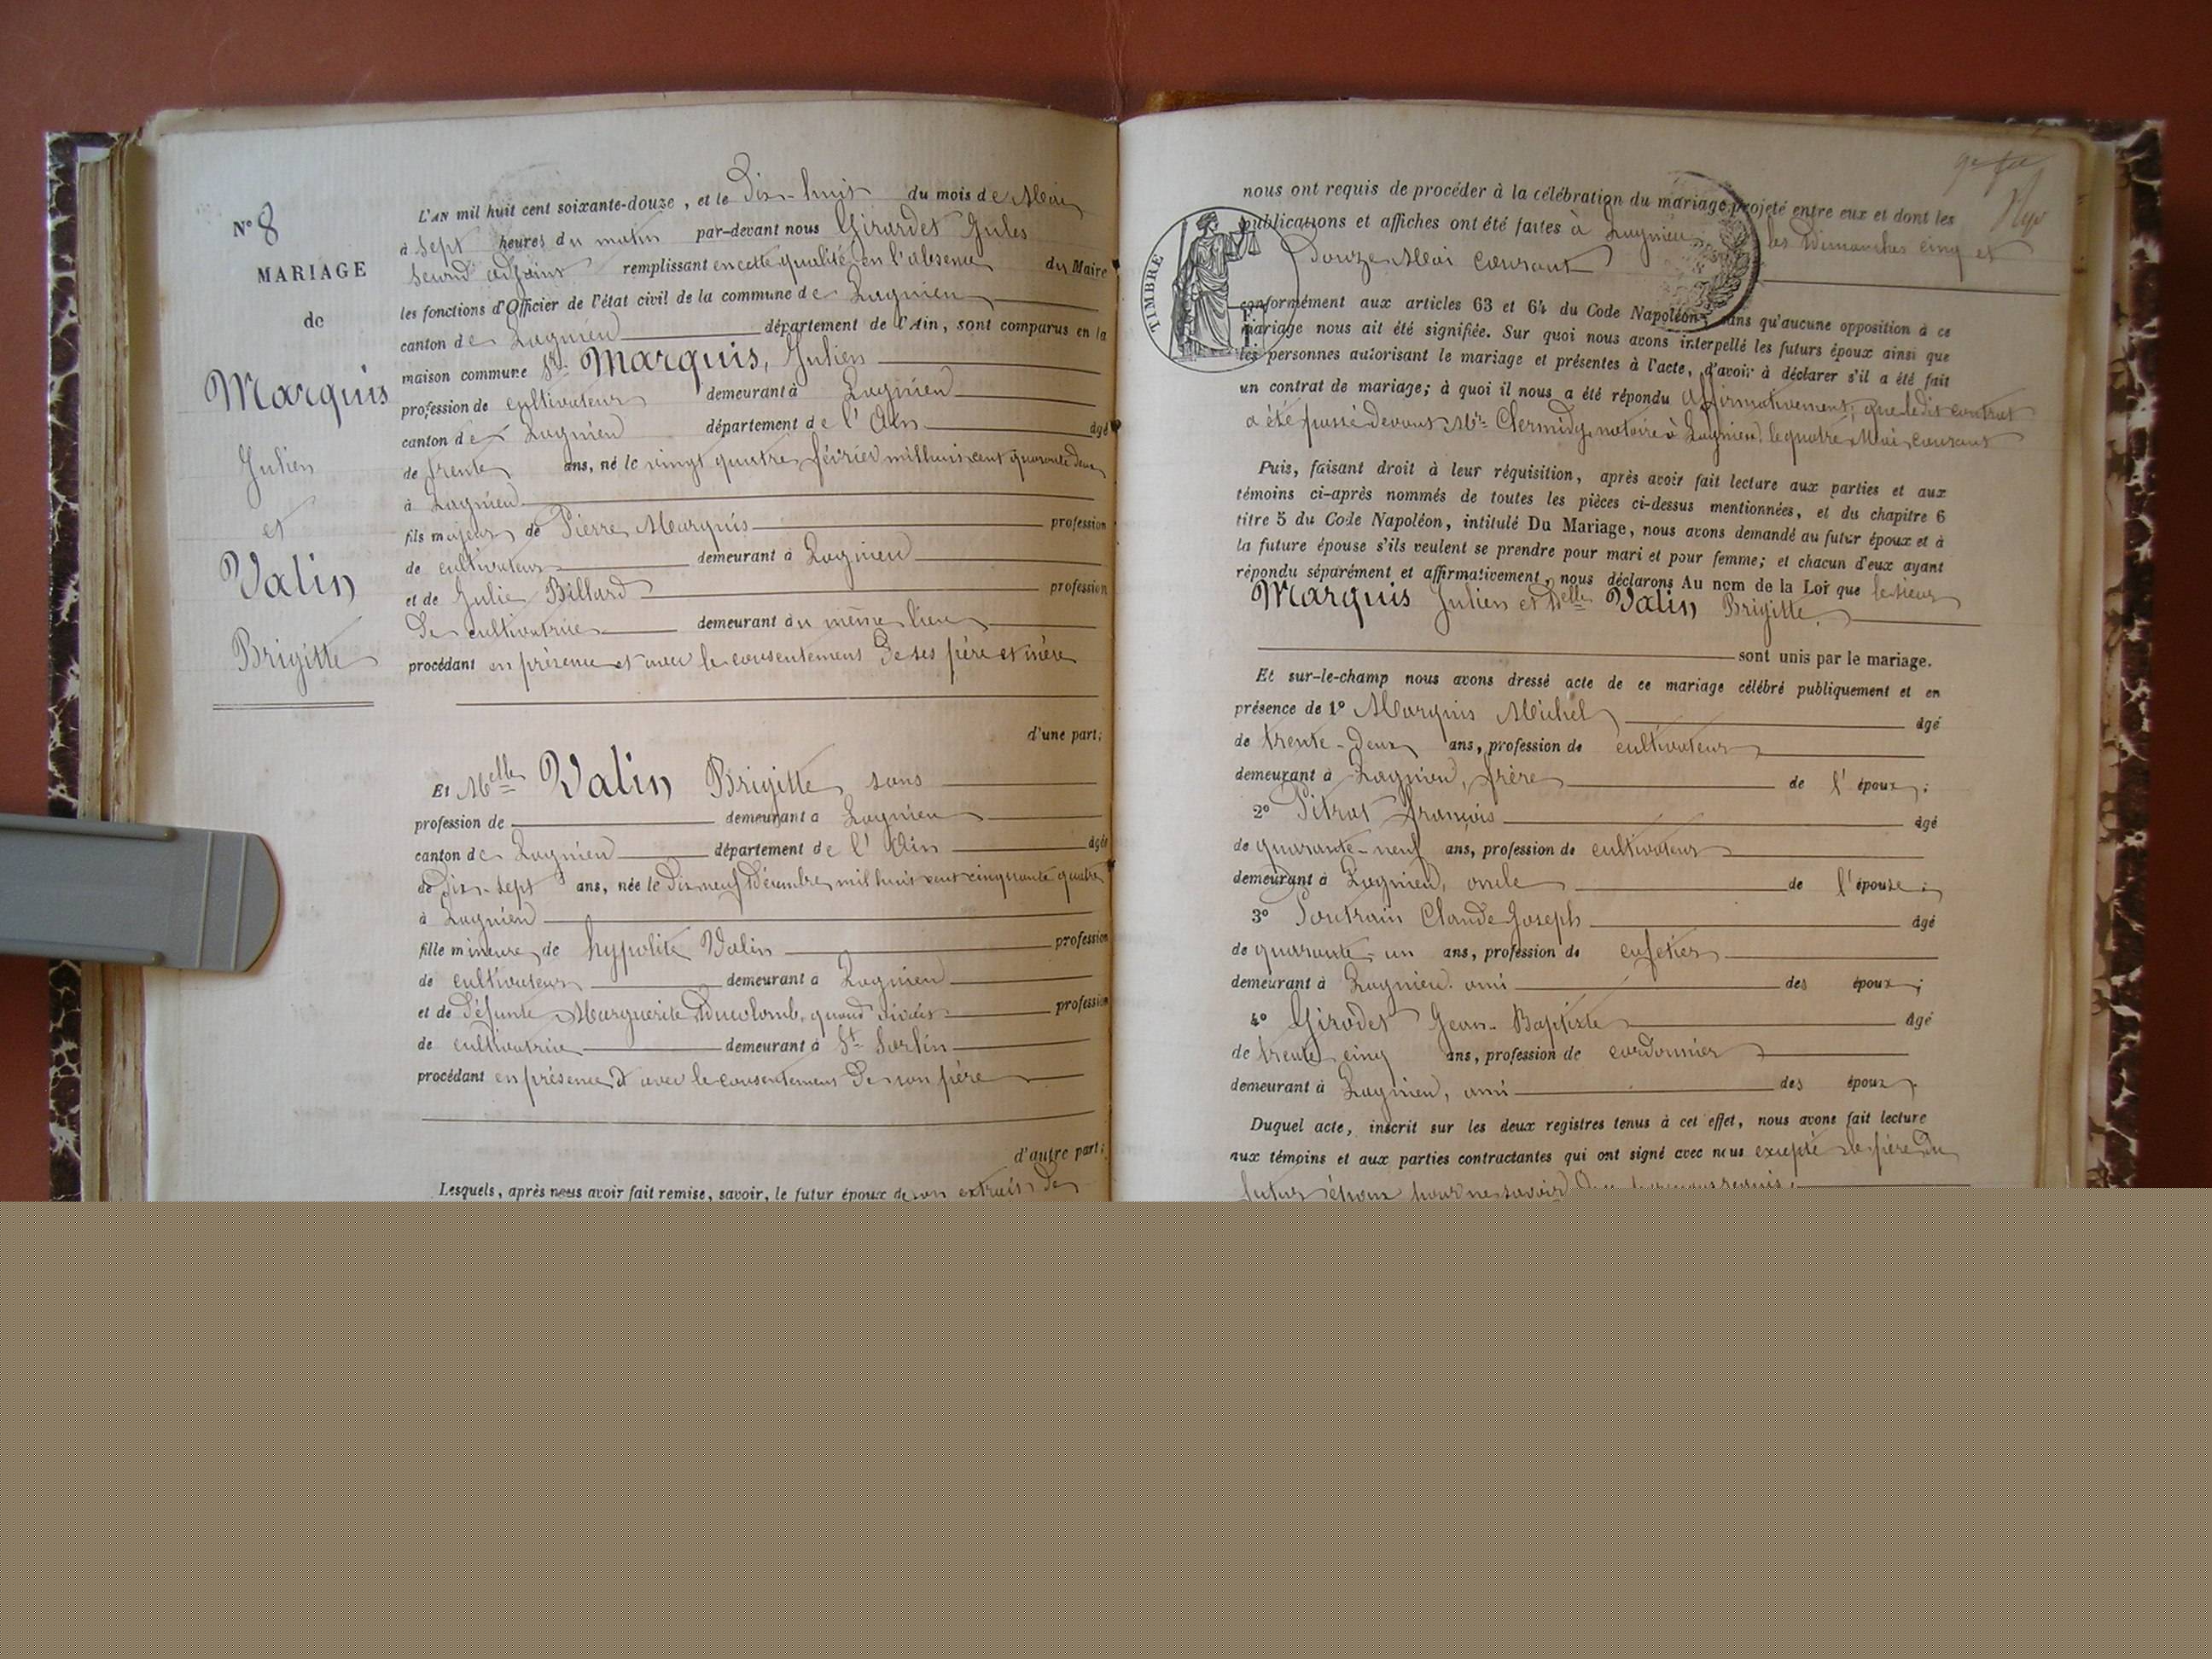 N° 8
MARIAGE
de
Marquis
Julien
et
Valin
Brigitte
L'AN mil huit cent soixante-douze, et le Dix-huit du mois de Mai
à sept heures du matin par-devant nous Girardet Jules
second adjoint remplissant en cette qualité en l'absence du Maire
les fonctions d'Officier de l'état civil de la commune de Lagnieu
canton de Lagnieu département de l'Ain, sont comparus en la
maison commune Sr Marquis, Julien
profession de cultivateur demeurant à Lagnieu
canton de Lagnieu département de l'Ain âgé
de trente ans, né le vingt quatre février mil huit cent quarante deux
à Lagnieu
fils majeur de Pierre Marquis profession
de cultivateur demeurant à Lagnieu
et de Julie Billard profession
De cultivatrice demeurant au même lieu
procédant en présence et avec le consentement De ses père et mère
d'une part;
Et Melle Valin Brigitte, sans
profession de demeurant à Lagnieu
canton de Lagnieu département de l'Ain âgée
de Dix-sept ans, née le Dix neuf Décembre mil huit cent cinquante quatre
à Lagnieu
fille mineure de hypolite Valin profession
de cultivateur demeurant à Lagnieu
et de Défunte Marguerite Ducolomb, quand vivait profession
de cultivatrice demeurant à St Sorlin
procédant en présence et avec le consentement De son père
d'autre part;
Lesquels, après nous avoir fait remise, savoir, le futur époux de son extrait de
TIMBRE
nous ont requis de procéder à la célébration du mariage projeté entre eux et dont les
publications et affiches ont été faites à Lagnieu les Dimanches cinq et
Douze Mai courant
conformément aux articles 63 et 64 du Code Napoléon, sans qu'aucune opposition à ce
mariage nous ait été signifiée. Sur quoi nous avons interpellé les futurs époux ainsi que
les personnes autorisant le mariage et présentes à l'acte, d'avoir à déclarer s'il a été fait
un contrat de mariage; à quoi il nous a été répondu Affirmativement, que ledit contrat
a été passé Devant Me Clermidy, notaire à Lagnieu le quatre Mai courant
Puis, faisant droit à leur réquisition, après avoir fait lecture aux parties et aux
témoins ci-après nommés de toutes les pièces ci-dessus mentionnées, et du chapitre 6
titre 5 du Code Napoléon, intitulé Du Mariage, nous avons demandé au futur époux et à
la future épouse s'ils veulent se prendre pour mari et pour femme; et chacun d'eux ayant
répondu séparément et affirmativement, nous déclarons Au nom de la Loi que le sieur
Marquis Julien et Delle Valin Brigitte
sont unis par le mariage.
Et sur-le-champ nous avons dressé acte de ce mariage célébré publiquement et en
présence de 1° Marquis Michel âgé
de trente-deux ans, profession de cultivateur
demeurant à Lagnieu, frère de l'époux;
2° Pitrat François âgé
de quarante-neuf ans, profession de cultivateur
demeurant à Lagnieu, oncle de l'épouse;
3° Poutrain Claude Joseph âgé
de quarante-un ans, profession de cafetier
demeurant à Lagnieu ami des époux;
4° Girodet Jean-Baptiste âgé
de trente cinq ans, profession de cordonnier
demeurant à Lagnieu, ami des époux.
Duquel acte, inscrit sur les deux registres tenus à cet effet, nous avons fait lecture
aux témoins et aux parties contractantes qui ont signé avec nous excepté le père du
futur époux pour ne savoir De ce requis.